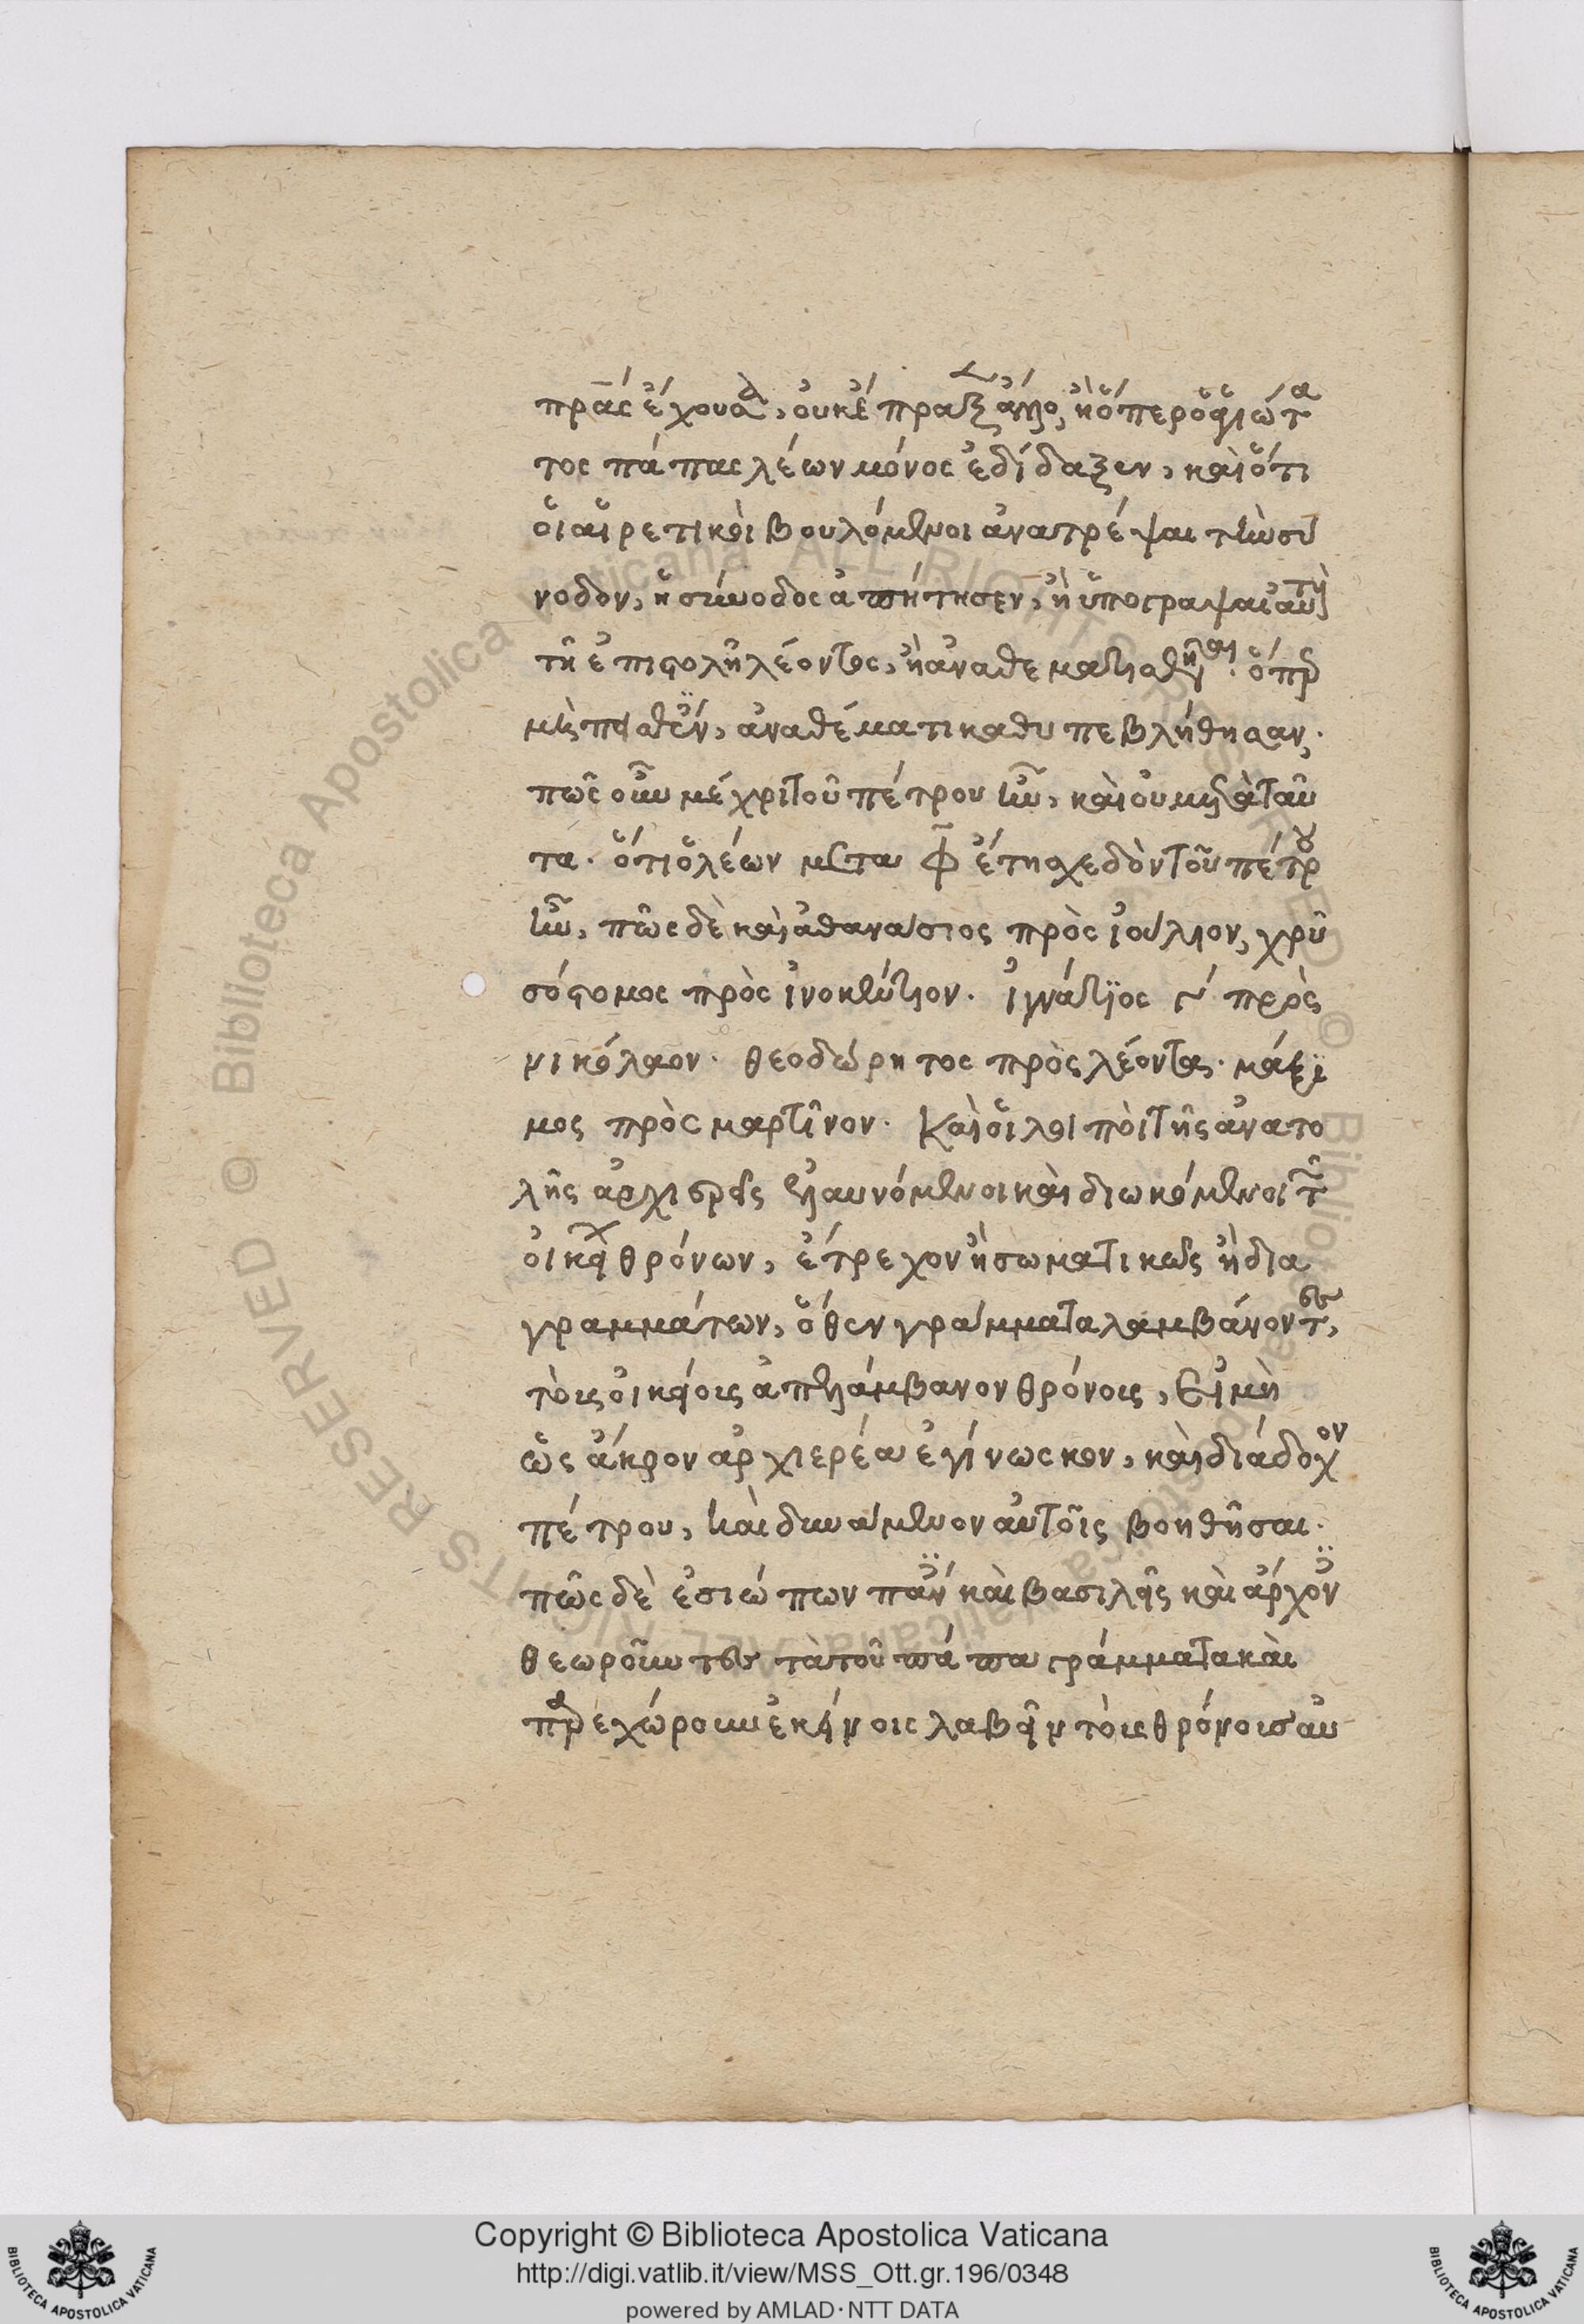 πρα̅ς ἔχουσα, οὐκ ἔπραξαν ἄλλο, ἢ ὅπερ ὁ ἁγιώτα
τος πάπας λέων μόνος ἐδίδαξεν, καὶ ὅτι
οἱ αἱρετικοὶ βουλόμενοι ἀνατρέψαι τὴν σύ
νοδον, ἡ σύνοδος ἀπῄτησεν, ἢ ὑπογράψαι αὐτῇ
τῇ ἐπιστολῇ λέοντος, ἢ ἀναθεματισθῆναι. ὅπερ
μὴ πεισθέντες, ἀναθέματι καθυπεβλήθησαν.
πῶς οὖν μέχρι τοῦ πέτρου ἦν, καὶ οὐ μετὰ ταῦ
τα. ὅτι ὁ λέων μετὰ φ̅ ἔτη σχεδὸν τοῦ πέτρου
ἦν, πῶς δὲ καὶ ἀθανάσιος πρὸς ἰούλιον, χρυ
σόστομος πρὸς ἰνοκέντιον. ἰγνάτϊος πρὸς
νικόλαον. θεοδώρητος πρὸς λέοντα. μάξϊ
μος πρὸς μαρτῖνον. καὶ οἱ λοιποὶ τῆς ἀνατο
λῆς ἀρχιερεῖς ἐλαυνόμενοι καὶ διωκόμενοι τῶν
οἰκείων θρόνων, ἔτρεχον ἢ σωματικῶς ἢ διὰ
γραμμάτων, ὅθεν γράμματα λαμβάνοντες,
τοὺς οἰκείους ἀπελάμβανον θρόνους, εἰ μὴ
ὡς ἄκρον ἀρχιερέα ἐγίνωσκον, καὶ διάδοχον
πέτρου, καὶ δυνάμενον αὐτοῖς βοηθῆσαι.
πῶς δὲ ἐσιώπων πάντες καὶ βασιλεῖς καὶ ἄρχοντες
θεωροῦντες τὰ τοῦ πάπα γράμματα καὶ
παρεχώρουν ἐκείνοις λαβεῖν τοὺς θρόνους αὐ
Copyright © Biblioteca Apostolica Vaticana
http://digi.vatlib.it/view/MSS_Ott.gr.196/0348
powered by AMLAD·NTT DATA